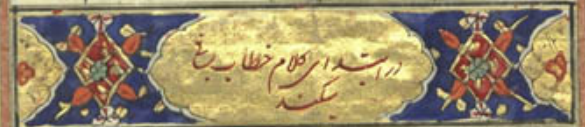 در ابتدای کلام خطاب بتیغ
میکند